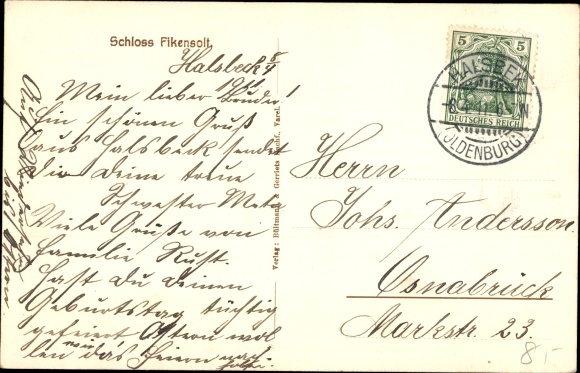 Schloss Fikensolt.
Halsbek 5/4
Mein lieber Bruder!
Ein schönen Gruß
aus Halsbeck sendet
dir deine treue
Schwester Meta
Viele Grüße von
Familie Rust.
Hast du deinen
Geburtstag tüchtig
gefeiert Ostern wol
len wir das Feiern nach
holen.
Auf Wiedersehen
Verlag: Bültmann & Gerriets Nachf. Varel.
5 5
DEUTSCHES REICH
HALSBEK
(OLDENBURG)
Herrn
Johs. Andersson.
Osnabrück
Markstr. 23.
8,-